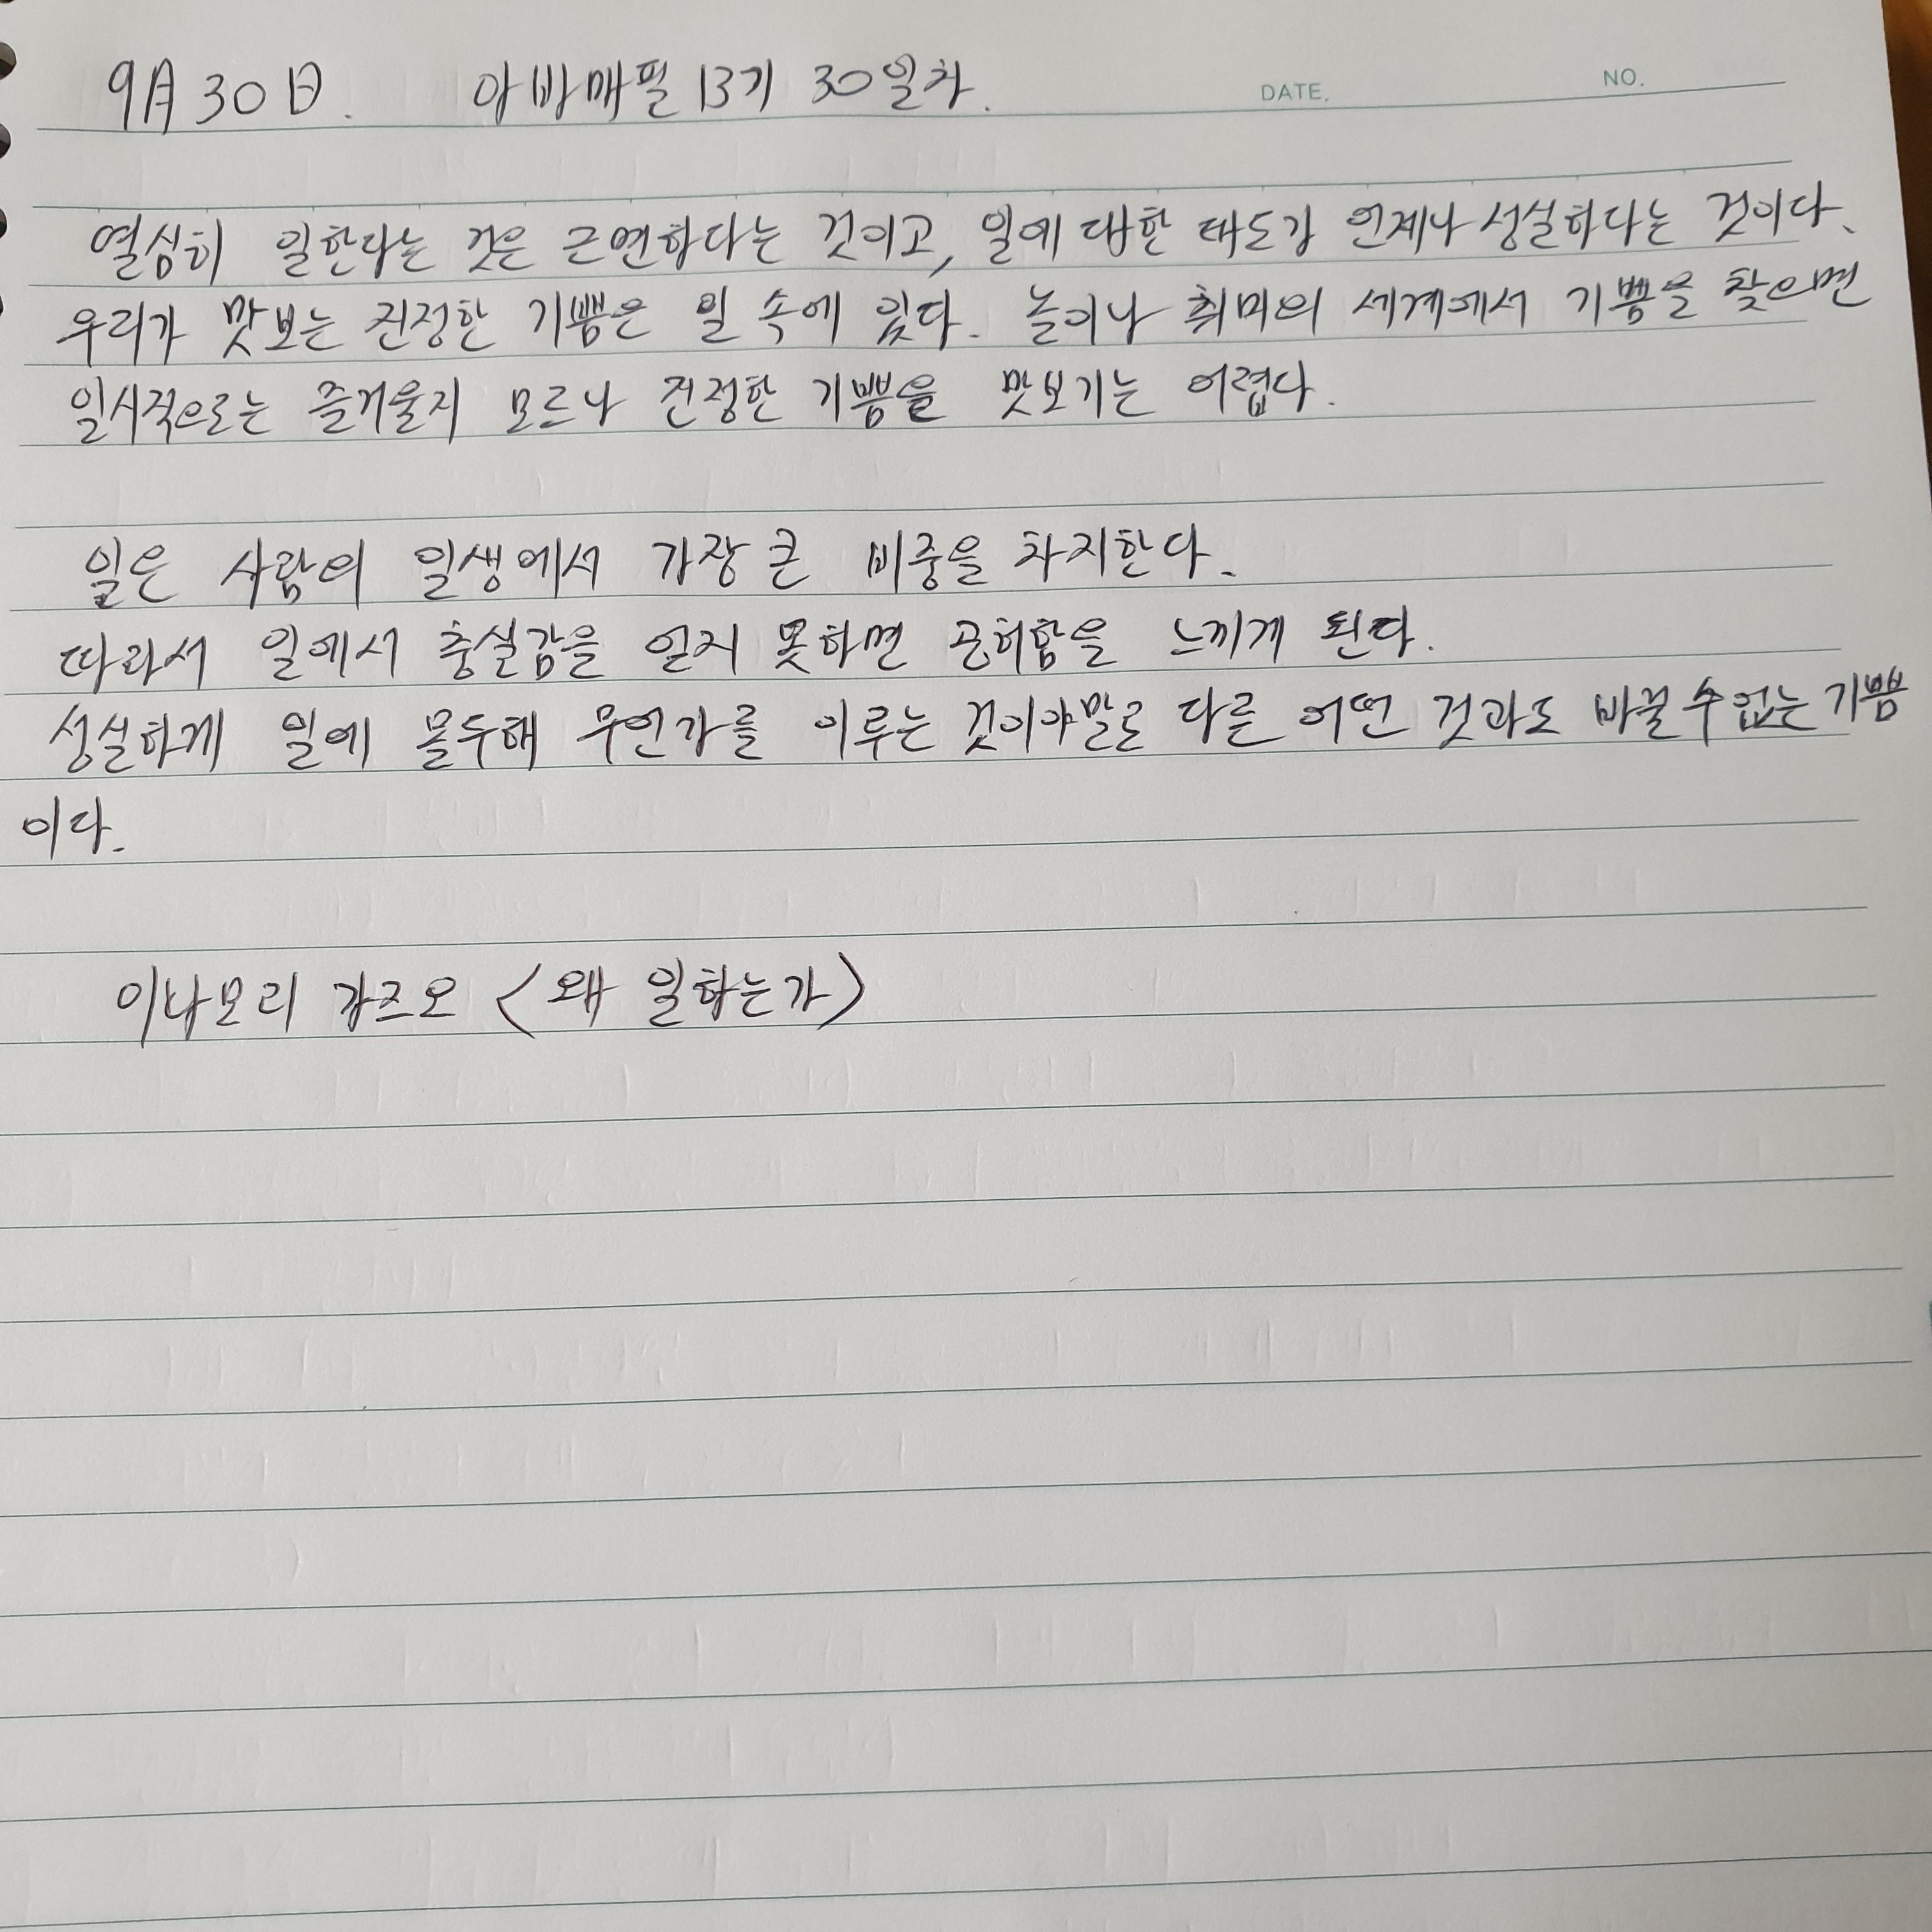 9月 30日. 아바매필 13기 30일차.
DATE. NO.
열심히 일한다는 것은 근면하다는 것이고, 일에 대한 태도가 언제나 성실하다는 것이다.
우리가 맛보는 진정한 기쁨은 일 속에 있다. 놀이나 취미의 세계에서 기쁨을 찾으면
일시적으로는 즐거울지 모르나 진정한 기쁨을 맛보기는 어렵다.
일은 사람의 일생에서 가장 큰 비중을 차지한다.
따라서 일에서 충실감을 얻지 못하면 공허함을 느끼게 된다.
성실하게 일에 몰두해 무언가를 이루는 것이야말로 다른 어떤 것과도 바꿀 수 없는 기쁨
이다.
이나모리 가즈오 <왜 일하는가>